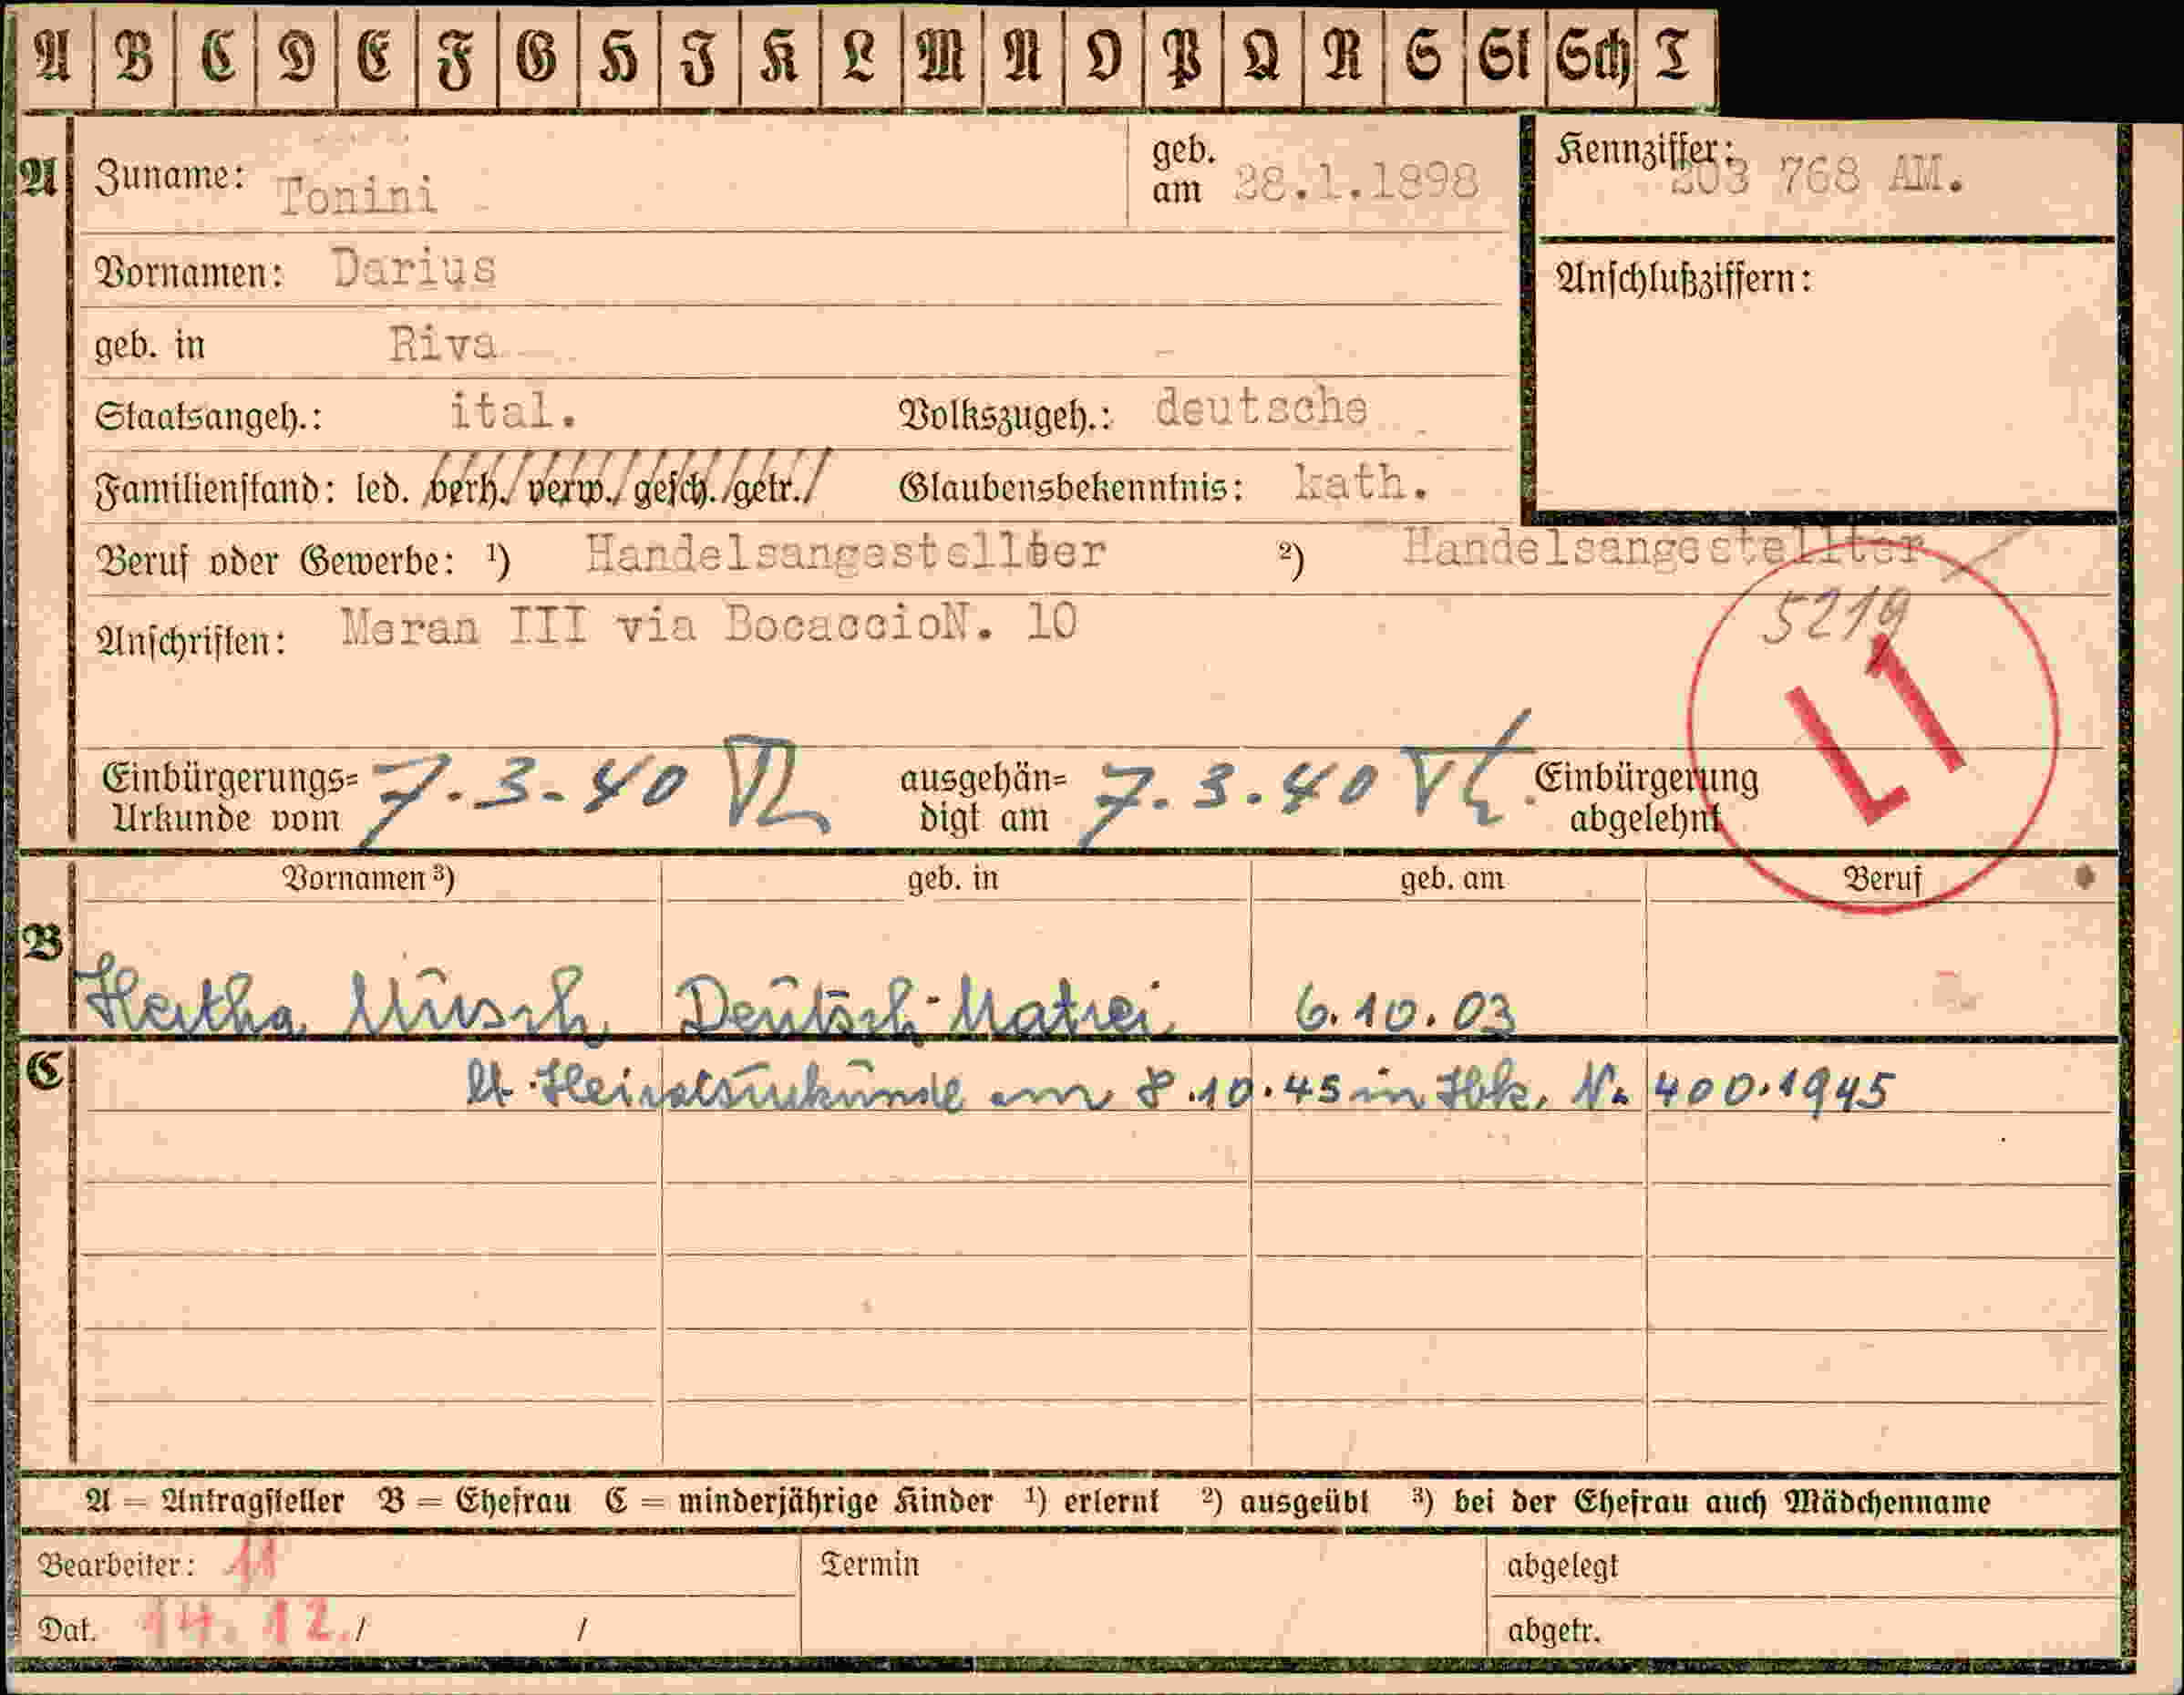 A B C D E F G H I K L M N O P Q R S St Sch T
A Zuname: Tonini geb. am 28.1.1898 Kennziffer: 203 768 AM.
Vornamen: Darius Anschlußziffern:
geb. in Riva
Staatsangeh.: ital. Volkszugeh.: deutsche
Familienstand: led. /verh./ verw./ gesch./getr./ Glaubensbekenntnis: kath.
Beruf oder Gewerbe: ¹) Handelsangestellter ²) Handelsangestellter
5219
Anschriften: Meran III via BocaccioN. 10
L1
Einbürgerungs= Urkunde vom 7.3.40 ausgehän= digt am 7.3.40 Einbürgerung abgelehnt
Vornamen ³) geb. in geb. am Beruf
B Hertha Deutsch-Matrei 6.10.03
C lt. Heiratsurkunde am 8.10.45 in Ibk. Nr. 400.1945
A = Antragsteller B = Ehefrau C = minderjährige Kinder ¹) erlernt ²) ausgeübt ³) bei der Ehefrau auch Mädchenname
Bearbeiter: 11 Termin abgelegt
Dat. 14. 12. / / abgetr.